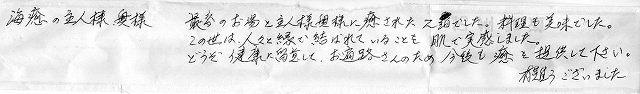 海癒の主人様 奥様
最高のお湯と主人様奥様に癒された2泊でした。料理も美味でした。
この世は、人々と縁で結ばれていることを肌で実感しました。
どうぞ健康に留意して、お遍路さんのため今後も癒を提供して下さい。
有難うございました